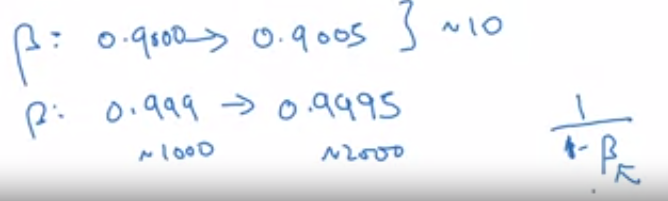 β: 0.9000→ 0.9005 } ~10
β: 0.999 → 0.9995
~1000 ~2000
1
1-β